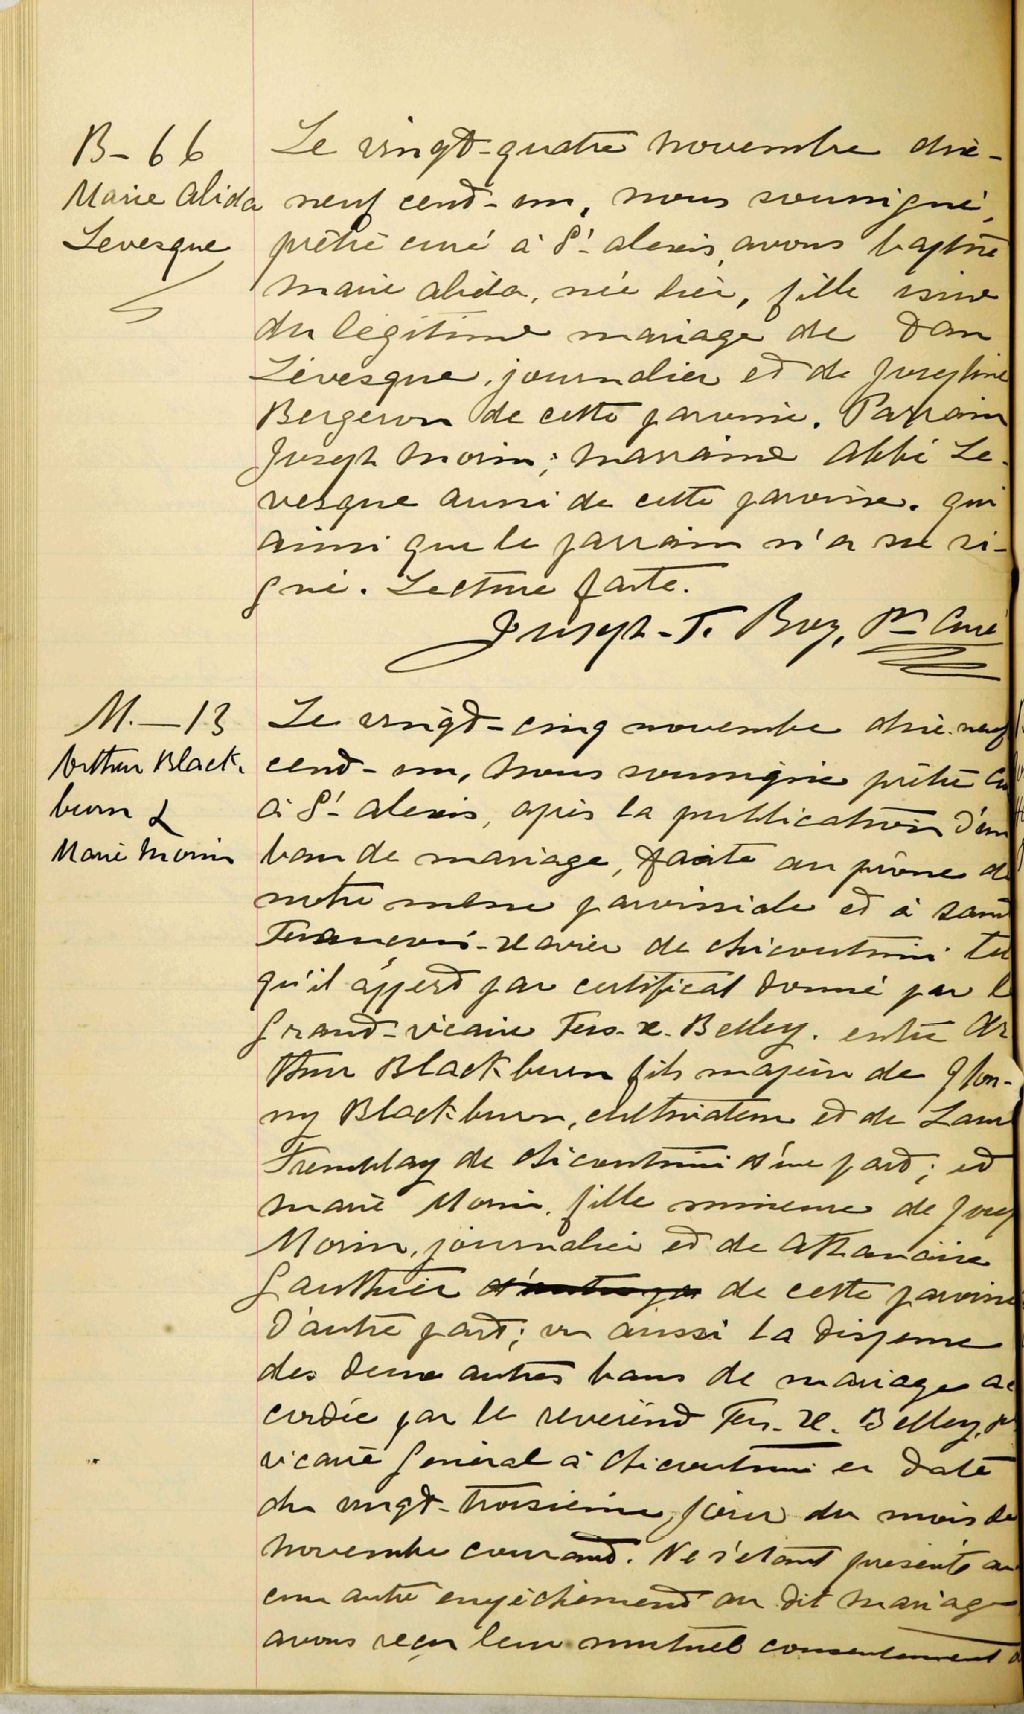 B-66
Marie Alida
Levesque
Le vingt-quatre novembre dix-
neuf cent-un, nous soussigné,
prêtre curé à St. Alexis, avons baptisé
Marie Alida, née hier, fille issue
du légitime mariage de Dan
Lévesque, journalier et de Josephine
Bergeron de cette paroisse. Parrain
Joseph Morin; marraine Abbé Le-
vesque aussi de cette paroisse. qui
ainsi que le parrain n'a su si-
gné. Lecture faite.
Joseph-T. Ptre Curé
M.-13
Arthur Black-
burn &
Marie Morin
Le vingt-cinq novembre dix-neuf
cent-un, nous soussigné prêtre cu
à St. Alexis, après la publication d'un
ban de mariage, faite au prône de
notre messe paroissiale et à saint
François-Xavier de Chicoutimi tel
qu'il appert par certificat donné par le
grand-vicaire Frs. X. Belley. entre Ar
thur Blackburn fils majeur de John-
ny Blackburn, cultivateur et de Laure
Tremblay de Chicoutimi d'une part; et
Marie Morin, fille mineure de Josep
Morin, journalier et de Athanaise
Gauthier d'autre pa de cette paroisse
d'autre part; vu aussi la dispense
des deux autres bans de mariage ac
cordée par le reverend Frs. X. Belley,
vicaire général à Chicoutimi en date
du vingt-troisième jour du mois de
novembre courant. Ne s'étant présenté au
cun autre empêchement au dit mariage
avons reçu leur mutuel consentement